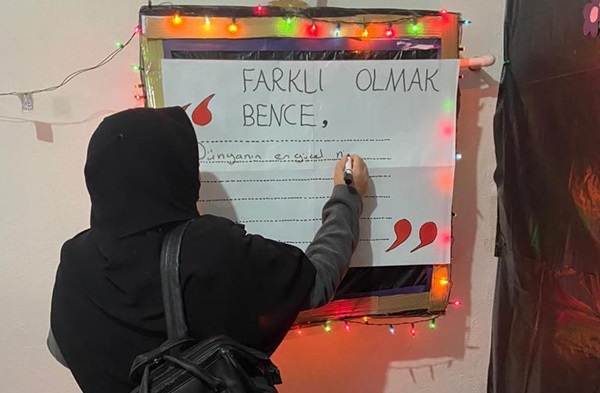 FARKLI OLMAK
BENCE,
Dünyanın en güzel n